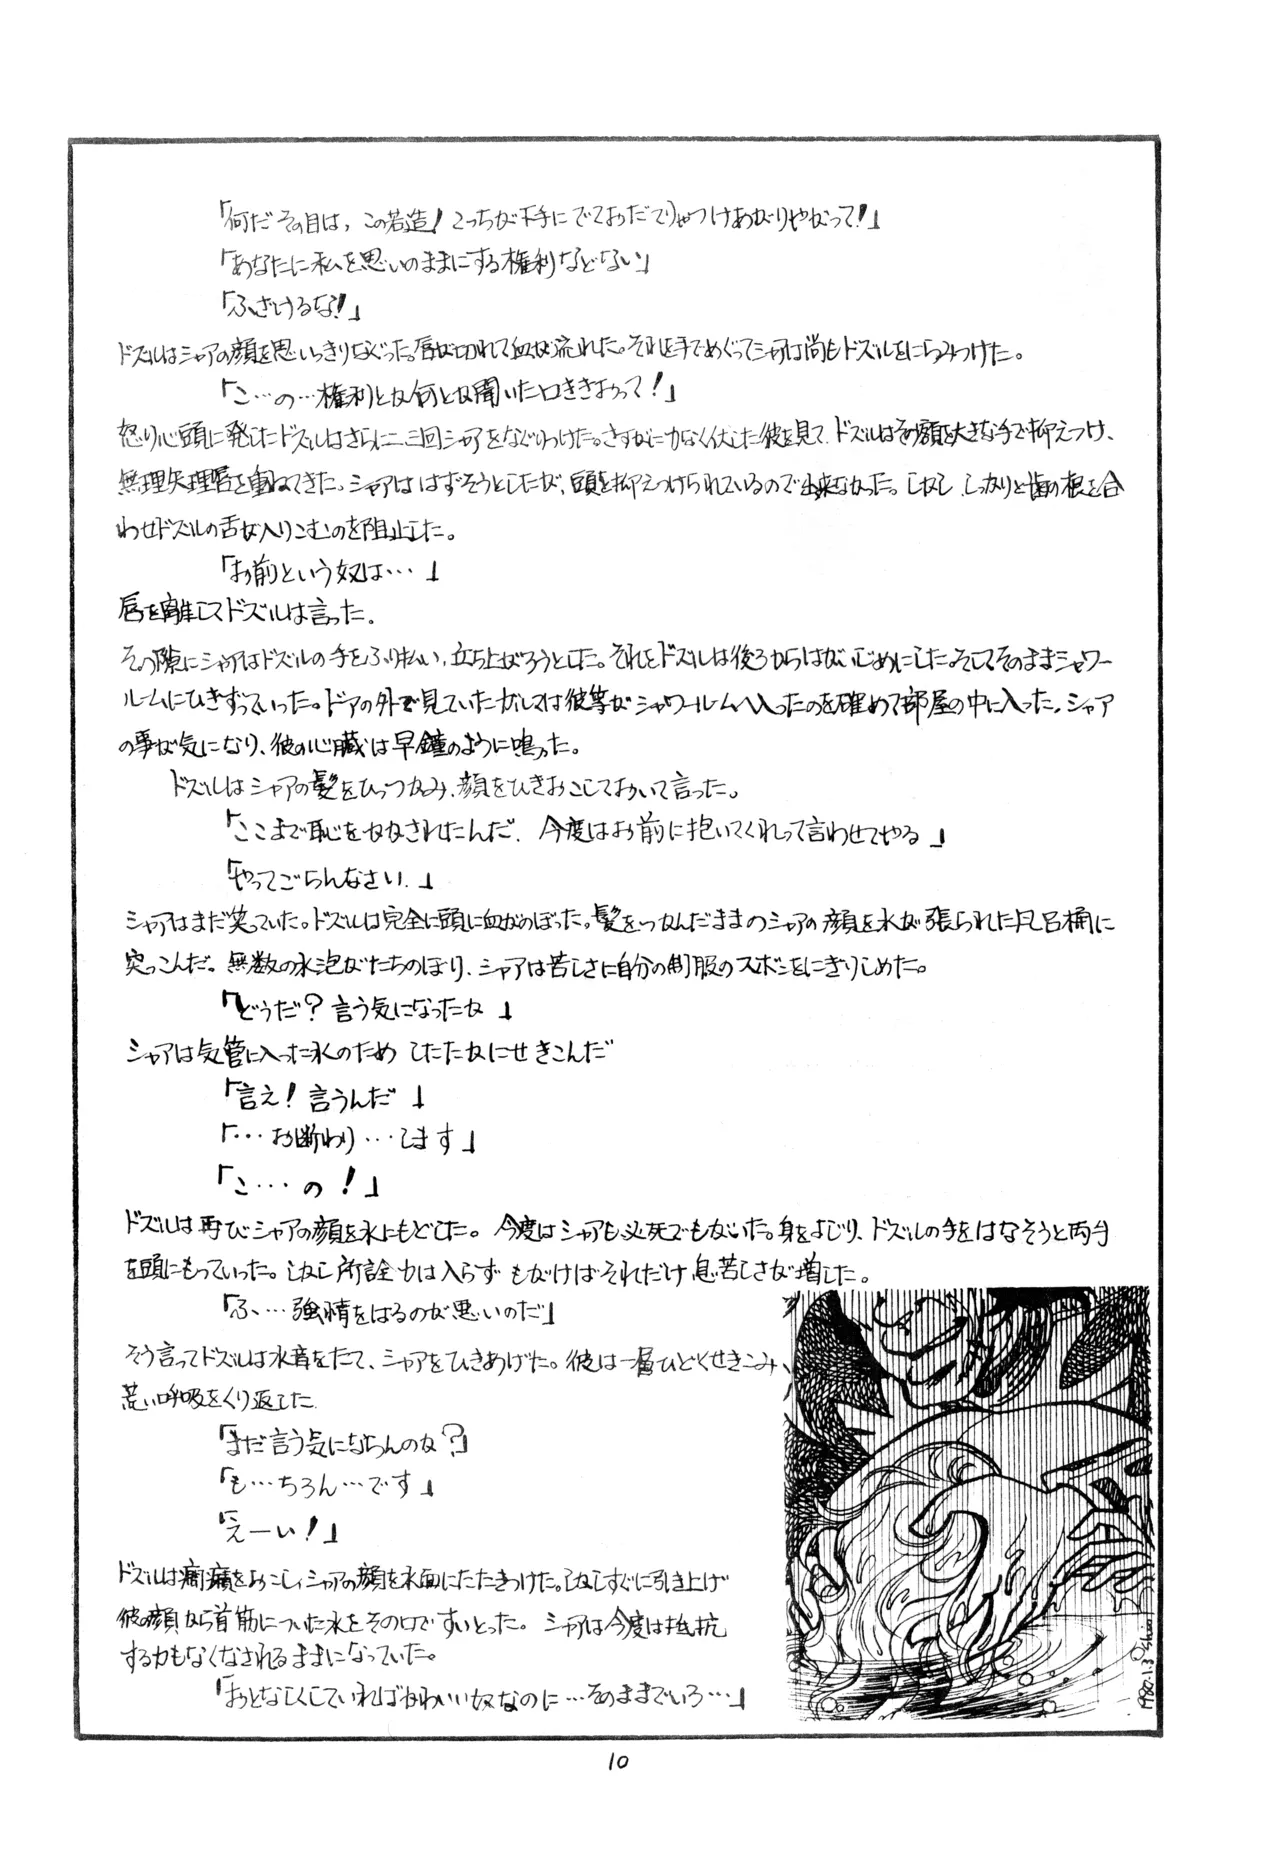 「何だその目は、この若造！こっちが下手にでておだてりゃつけあがりやがって！」
「あなたに私を思いのままにする権利などない」
「ふざけるな！」
ドズルはシャアの顔を思いっきりなぐった。唇が切れて血が流れた。それを手でぬぐってシャアは尚もドズルをにらみつけた。
「こ…の…権利とか何とか聞いた口ききおって！」
怒り心頭に発したドズルはさらに二、三回シャアをなぐりつけた。さすがに力なく伏した彼を見て、ドズルはその顔を大きな手で抑えつけ、
無理矢理唇を重ねてきた。シャアははずそうとしたが、頭を抑えつけられているので出来なかった。しかし、しっかりと歯の根を合
わせドズルの舌が入りこむのを阻止した。
「お前という奴は…」
唇を離してドズルは言った。
その隙にシャアはドズルの手をふり払い、立ち上がろうとした。それをドズルは後ろからはがいじめにした。そしてそのままシャワー
ルームにひきずっていった。ドアの外で見ていたガルマは彼等がシャワールームへ入ったのを確めて部屋の中に入った。シャア
の事が気になり、彼の心臓は早鐘のように鳴った。
ドズルはシャアの髪をひっつかみ、顔をひきおこしておいて言った。
「ここまで恥をかかされたんだ。今度はお前に抱いてくれって言わせてやる」
「やってごらんなさい。」
シャアはまだ笑っていた。ドズルは完全に頭に血がのぼった。髪をつかんだままのシャアの顔を水が張られた風呂桶に
突っこんだ。無数の水泡がたちのぼり、シャアは苦しさに自分の制服のズボンをにぎりしめた。
「どうだ？言う気になったか」
シャアは気管に入った水のため したたかにせきこんだ
「言え！言うんだ」
「…お断わり…します」
「こ…の！」
ドズルは再びシャアの顔を水にもどした。今度はシャアも必死でもがいた。身をよじり、ドズルの手をはなそうと両手
を頭にもっていった。しかし所詮力は入らず もがけばそれだけ息苦しさが増した。
「ふ…強情をはるのが悪いのだ」
そう言ってドズルは水音をたて、シャアをひきあげた。彼は一層ひどくせきこみ、
荒い呼吸をくり返した。
「まだ言う気にならんのか？」
「も…ちろん…です」
「えーい！」
ドズルは癇癪をおこしシャアの顔を水面にたたきつけた。しかしすぐに引き上げ
彼の顔から首筋についた水をその口ですいとった。シャアは今度は抵抗
する力もなくなされるままになっていた。
「おとなしくしていればかわいい奴なのに…そのままでいろ…」
1980.1.3
10